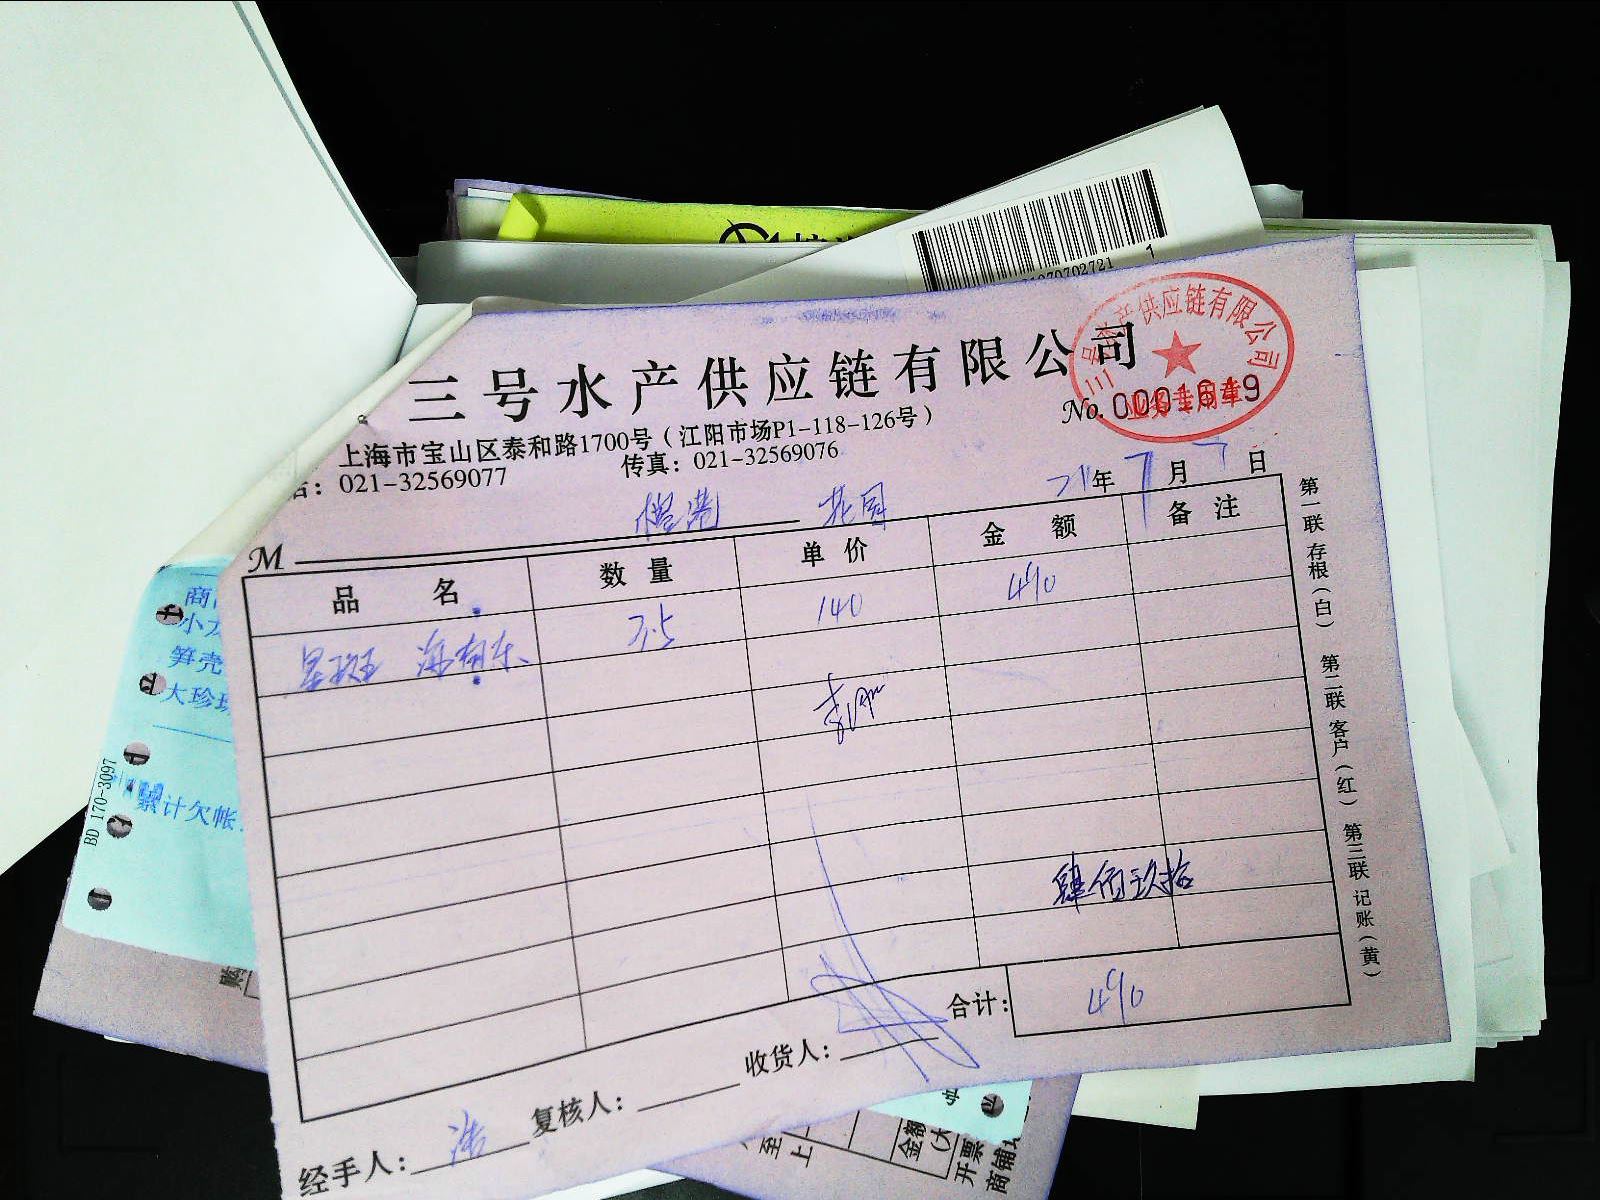 1
三号水产供应链有限公司
三号水产供应链有限公司
业务专用章
No. 0001619
上海市宝山区泰和路1700号（江阳市场P1-118-126号）
话：021-32569077 传真：021-32569076
21年7月7日
M 花园
品名 数量 单价 金额 备注
星斑 海南东 3.5 140 490
肆佰玖拾
合计：490
经手人：浩 复核人： 收货人：
第一联 存根（白） 第二联 客户（红） 第三联 记账（黄）
笋壳
累计欠帐
BD 170-3097
金额
开票
商铺